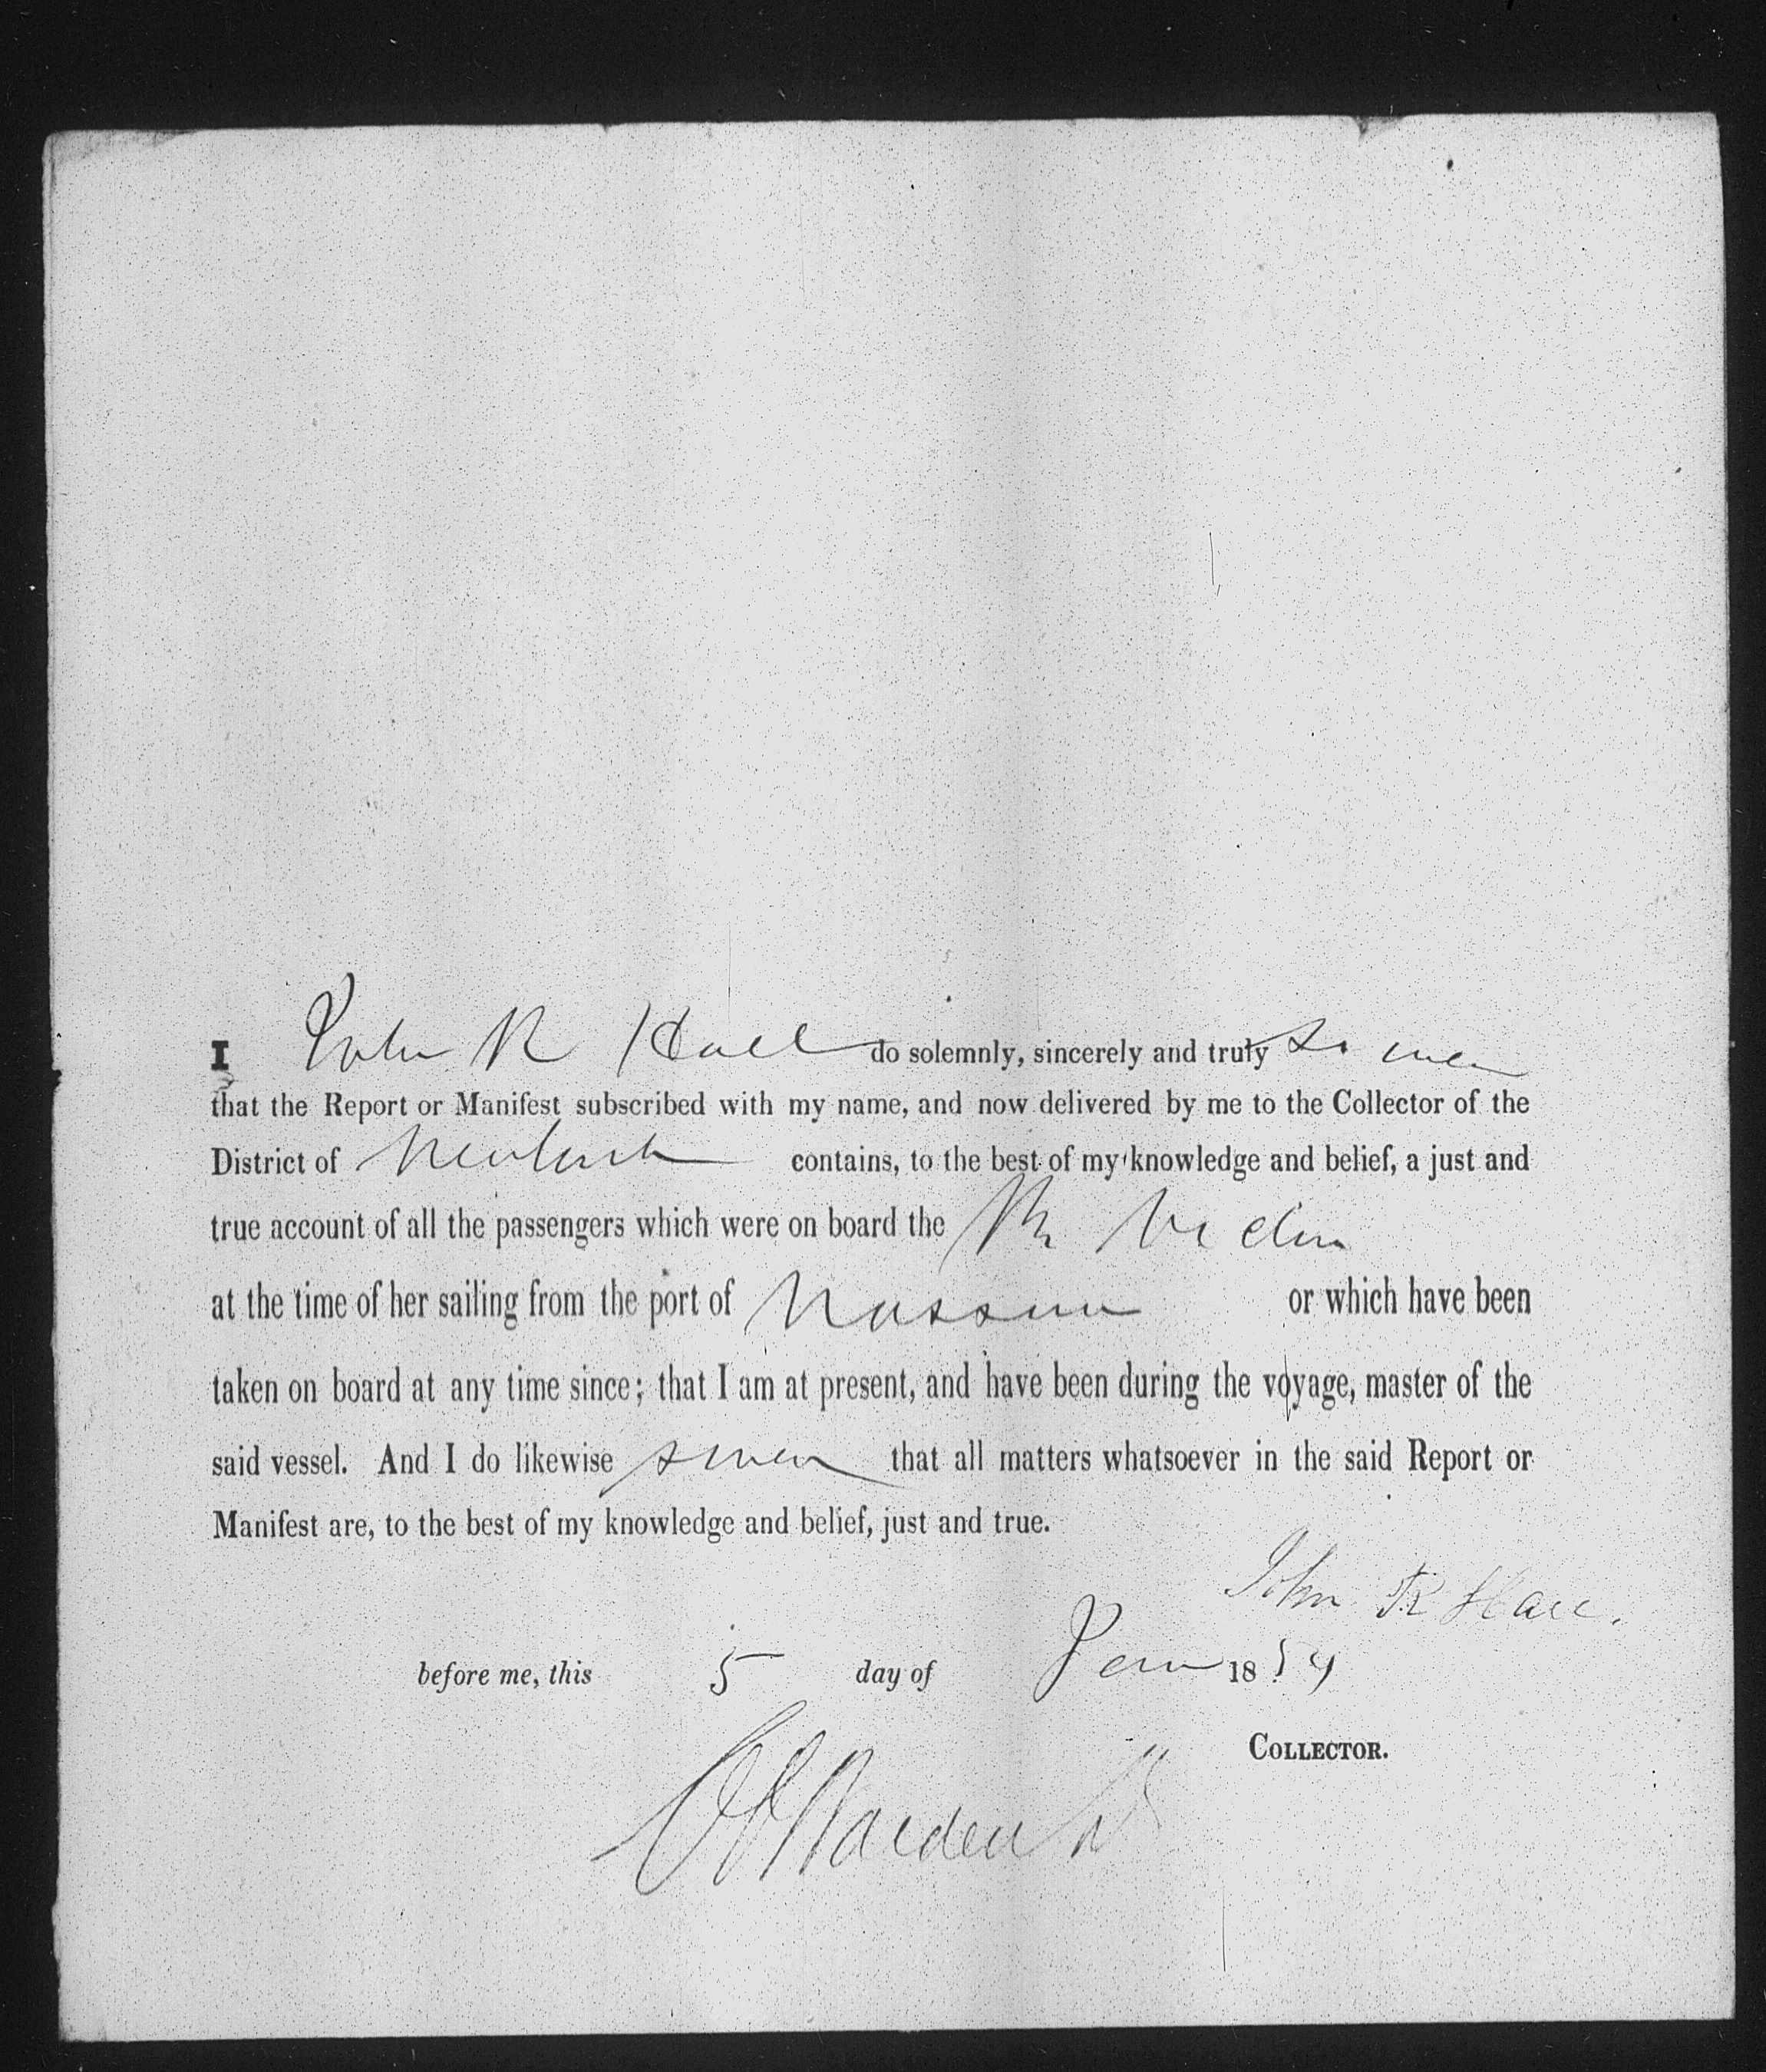 I John R Hall do solemnly, sincerely and truly swear
that the Report or Manifest subscribed with my name, and now delivered by me to the Collector of the
District of contains, to the best of my knowledge and belief, a just and
true account of all the passengers which were on board the
at the time of her sailing from the port of Nassau or which have been
taken on board at any time since; that I am at present, and have been during the voyage, master of the
said vessel. And I do likewise swear that all matters whatsoever in the said Report or
Manifest are, to the best of my knowledge and belief, just and true.
John R Hall.
before me, this 5 day of 1854
COLLECTOR.